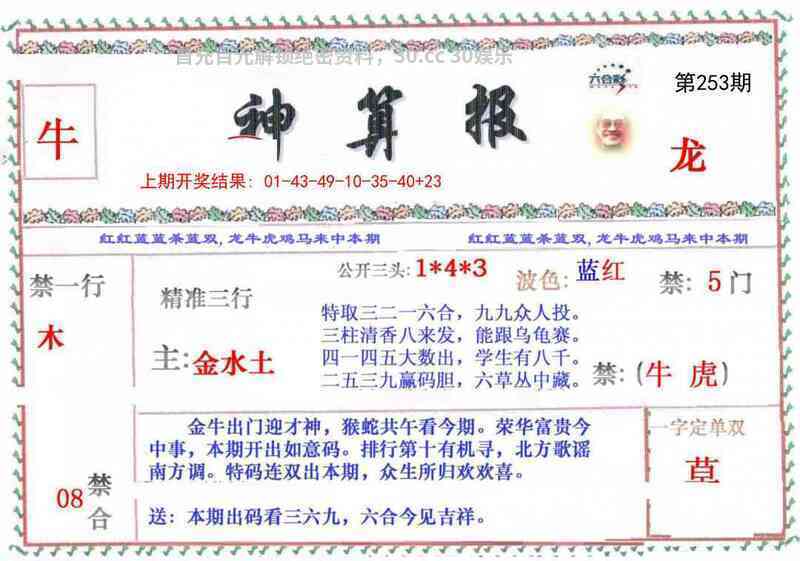 首充百元解锁绝密资料，30.cc 30娱乐
六合彩
第253期
牛
神算报
龙
上期开奖结果：01-43-49-10-35-40+23
红红蓝蓝杀蓝双,龙牛虎鸡马来中本期
红红蓝蓝杀蓝双,龙牛虎鸡马来中本期
禁一行
木
精准三行
主:金水土
公开三头:1*4*3
波色:蓝红
禁:5门
特取三二一六合，九九众人投。
三柱清香八来发，能跟乌龟赛。
四一四五大数出，学生有八千。
二五三九赢码胆，六草丛中藏。
禁:(牛 虎)
金牛出门迎才神，猴蛇共午看今期。荣华富贵今
中事，本期开出如意码。排行第十有机寻，北方歌谣
南方调。特码连双出本期，众生所归欢欢喜。
送：本期出码看三六九，六合今见吉祥。
一字定单双
草
08
禁合